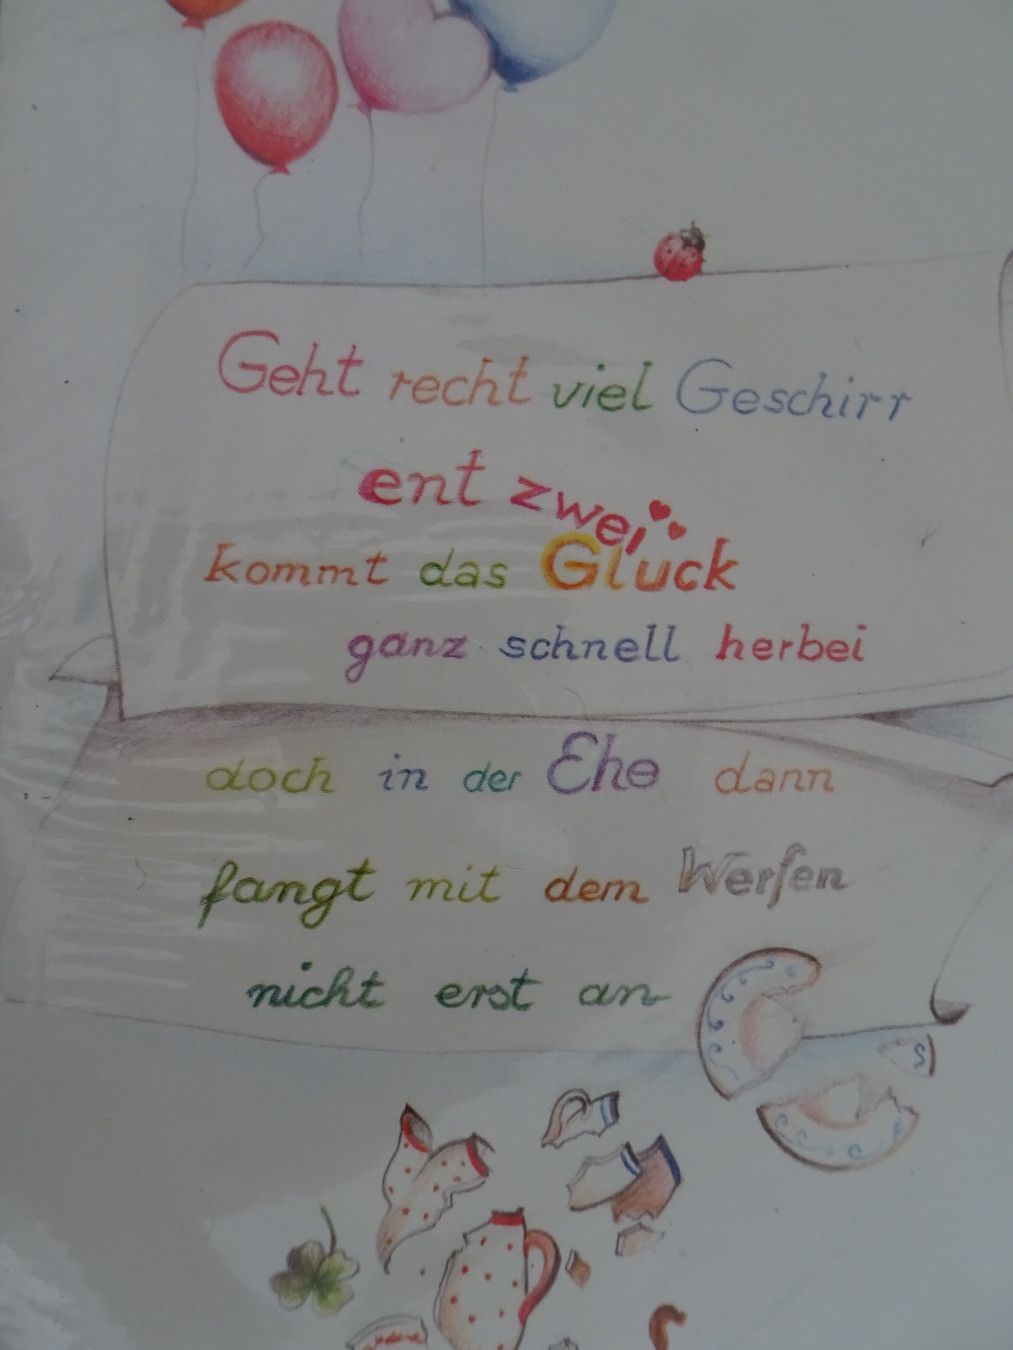 Geht recht viel Geschirr
ent zwei,
kommt das Glück
ganz schnell herbei
doch in der Ehe dann
fangt mit dem Werfen
nicht erst an